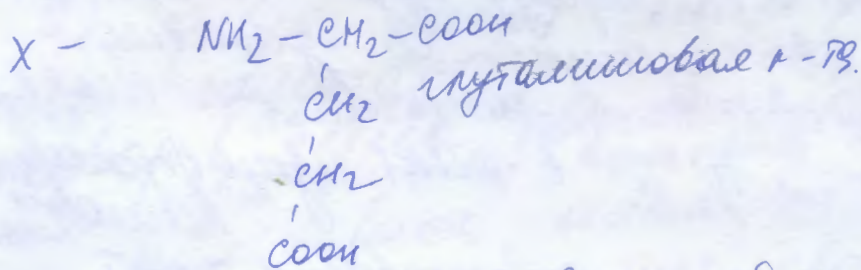 X – NH2 – CH2 – COOH
CH2 глутаминовая к-та.
CH2
COOH